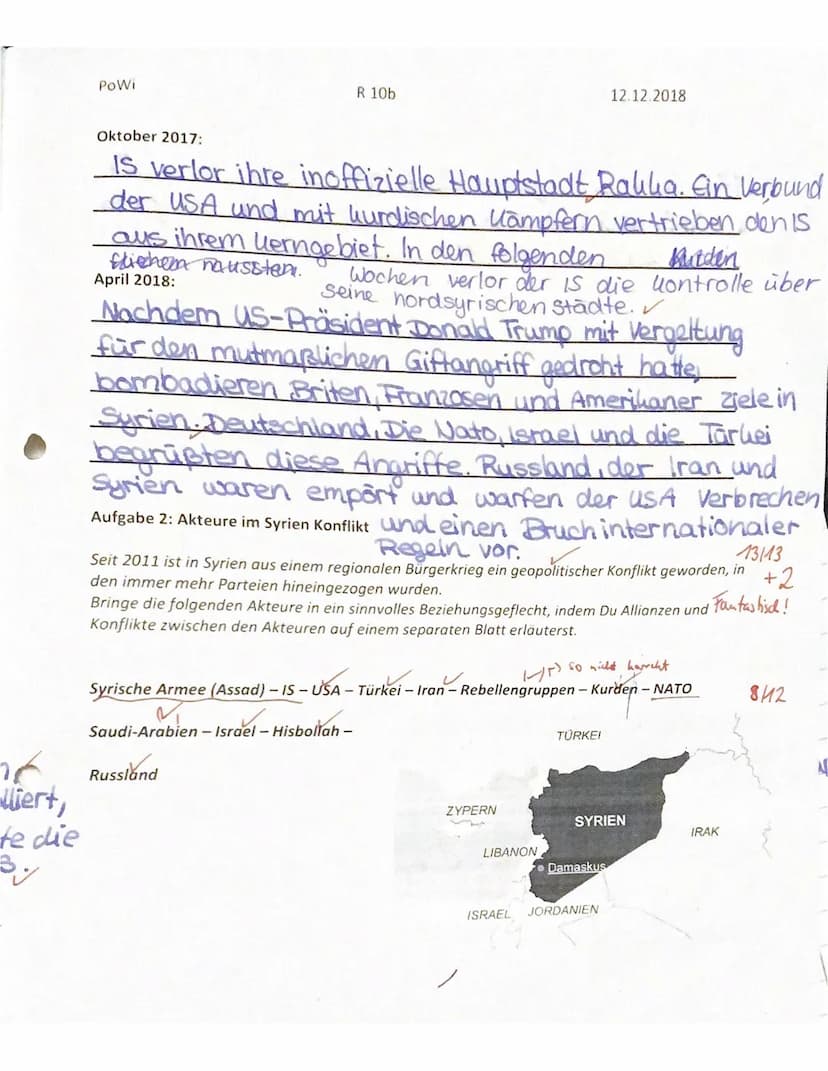 PoWi
R 10b
12.12.2018
Oktober 2017:
IS verlor ihre inoffizielle Hauptstadt Rakka. Ein Verbund
der USA und mit kurdischen Kämpfern vertrieben den IS
aus ihrem Kerngebiet. In den folgenden
Wochen verlor der IS die Kontrolle über
seine nordsyrischen Städte.
April 2018:
Nachdem US-Präsident Donald Trump mit Vergeltung
für den mutmaßlichen Giftangriff gedroht hatte,
bombadieren Briten, Franzosen und Amerikaner ziele in
Syrien. Deutschland, Die Nato, Israel und die Türkei
begrüßten diese Angriffe. Russland, der Iran und
Syrien waren empört und warfen der USA Verbrechen
und einen Bruch internationaler
Regeln vor.
13/13
+2
Fantastisch!
Aufgabe 2: Akteure im Syrien Konflikt
Seit 2011 ist in Syrien aus einem regionalen Bürgerkrieg ein geopolitischer Konflikt geworden, in
den immer mehr Parteien hineingezogen wurden.
Bringe die folgenden Akteure in ein sinnvolles Beziehungsgeflecht, indem Du Allianzen und
Konflikte zwischen den Akteuren auf einem separaten Blatt erläuterst.
so nicht korrekt
Syrische Armee (Assad) – IS – USA – Türkei – Iran – Rebellengruppen – Kurden – NATO
8/12
Saudi-Arabien – Israel – Hisbollah –
Russland
lliert,
te die
3.
TÜRKEI
ZYPERN
SYRIEN
IRAK
LIBANON
Damaskus
ISRAEL
JORDANIEN